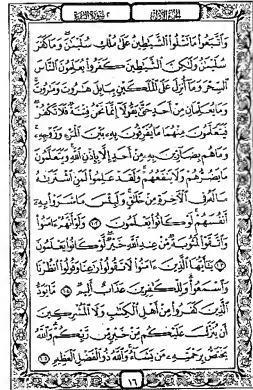 الجزء الأول سورة البقرة ٢
وَاتَّبَعُوا مَا تَتْلُوا الشَّيَاطِينُ عَلَىٰ مُلْكِ سُلَيْمَانَ وَمَا كَفَرَ
سُلَيْمَانُ وَلَٰكِنَّ الشَّيَاطِينَ كَفَرُوا يُعَلِّمُونَ النَّاسَ
السِّحْرَ وَمَا أُنزِلَ عَلَى الْمَلَكَيْنِ بِبَابِلَ هَارُوتَ وَمَارُوتَ
وَمَا يُعَلِّمَانِ مِنْ أَحَدٍ حَتَّىٰ يَقُولَا إِنَّمَا نَحْنُ فِتْنَةٌ فَلَا تَكْفُرْ
فَيَتَعَلَّمُونَ مِنْهُمَا مَا يُفَرِّقُونَ بِهِ بَيْنَ الْمَرْءِ وَزَوْجِهِ
وَمَا هُم بِضَارِّينَ بِهِ مِنْ أَحَدٍ إِلَّا بِإِذْنِ اللَّهِ وَيَتَعَلَّمُونَ
مَا يَضُرُّهُمْ وَلَا يَنفَعُهُمْ وَلَقَدْ عَلِمُوا لَمَنِ اشْتَرَاهُ
مَا لَهُ فِي الْآخِرَةِ مِنْ خَلَاقٍ وَلَبِئْسَ مَا شَرَوْا بِهِ
أَنفُسَهُمْ لَوْ كَانُوا يَعْلَمُونَ ١٠٢ وَلَوْ أَنَّهُمْ آمَنُوا
وَاتَّقَوْا لَمَثُوبَةٌ مِّنْ عِندِ اللَّهِ خَيْرٌ لَّوْ كَانُوا يَعْلَمُونَ
١٠٣ يَا أَيُّهَا الَّذِينَ آمَنُوا لَا تَقُولُوا رَاعِنَا وَقُولُوا انظُرْنَا
وَاسْمَعُوا وَلِلْكَافِرِينَ عَذَابٌ أَلِيمٌ ١٠٤ مَّا يَوَدُّ
الَّذِينَ كَفَرُوا مِنْ أَهْلِ الْكِتَابِ وَلَا الْمُشْرِكِينَ
أَن يُنَزَّلَ عَلَيْكُم مِّنْ خَيْرٍ مِّن رَّبِّكُمْ وَاللَّهُ
يَخْتَصُّ بِرَحْمَتِهِ مَن يَشَاءُ وَاللَّهُ ذُو الْفَضْلِ الْعَظِيمِ ١٠٥
١٦